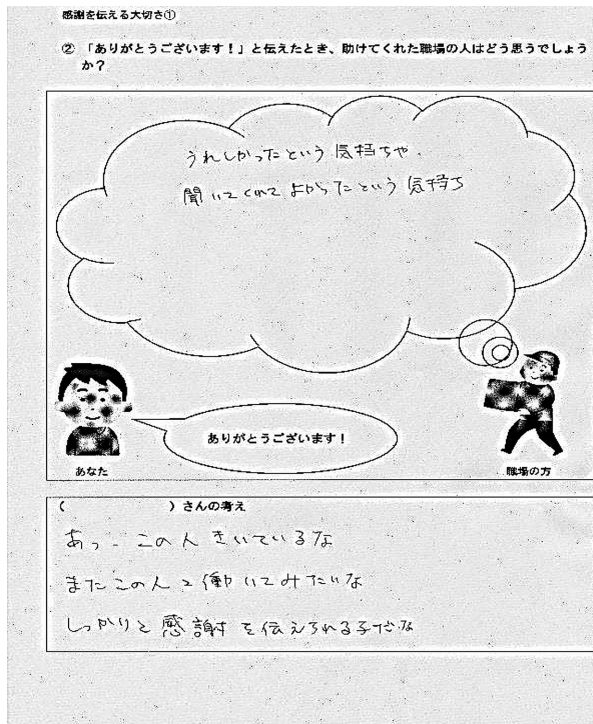 感謝を伝える大切さ①
② 「ありがとうございます！」と伝えたとき、助けてくれた職場の人はどう思うでしょう
か？
うれしかったという気持ちや、
聞いてくれてよかったという気持ち
ありがとうございます！
あなた
職場の方
（　　　　　　　　　）さんの考え
あっ、この人きいているな
またこの人と働いてみたいな
しっかりと感謝を伝えられる子だな